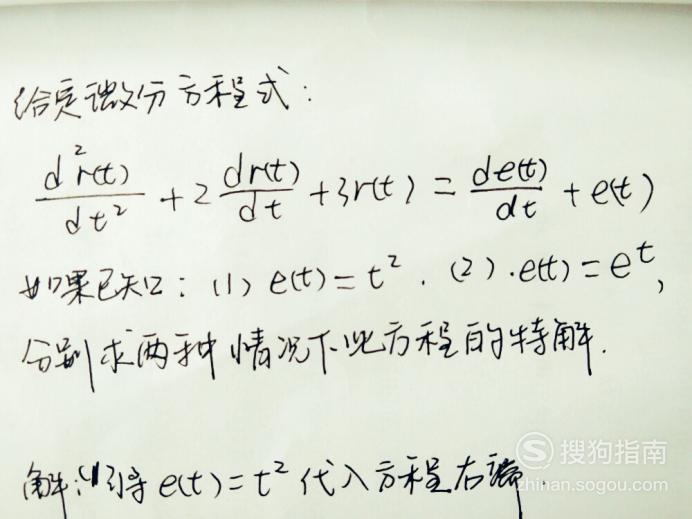 给定微分方程式:
d²r(t)/dt² + 2 dr(t)/dt + 3r(t) = de(t)/dt + e(t)
如果已知: (1) e(t) = t². (2). e(t) = e^t,
分别求两种情况下此方程的特解.
解: (1) 将 e(t) = t² 代入方程右端
搜狗指南
zhinan.sogou.com